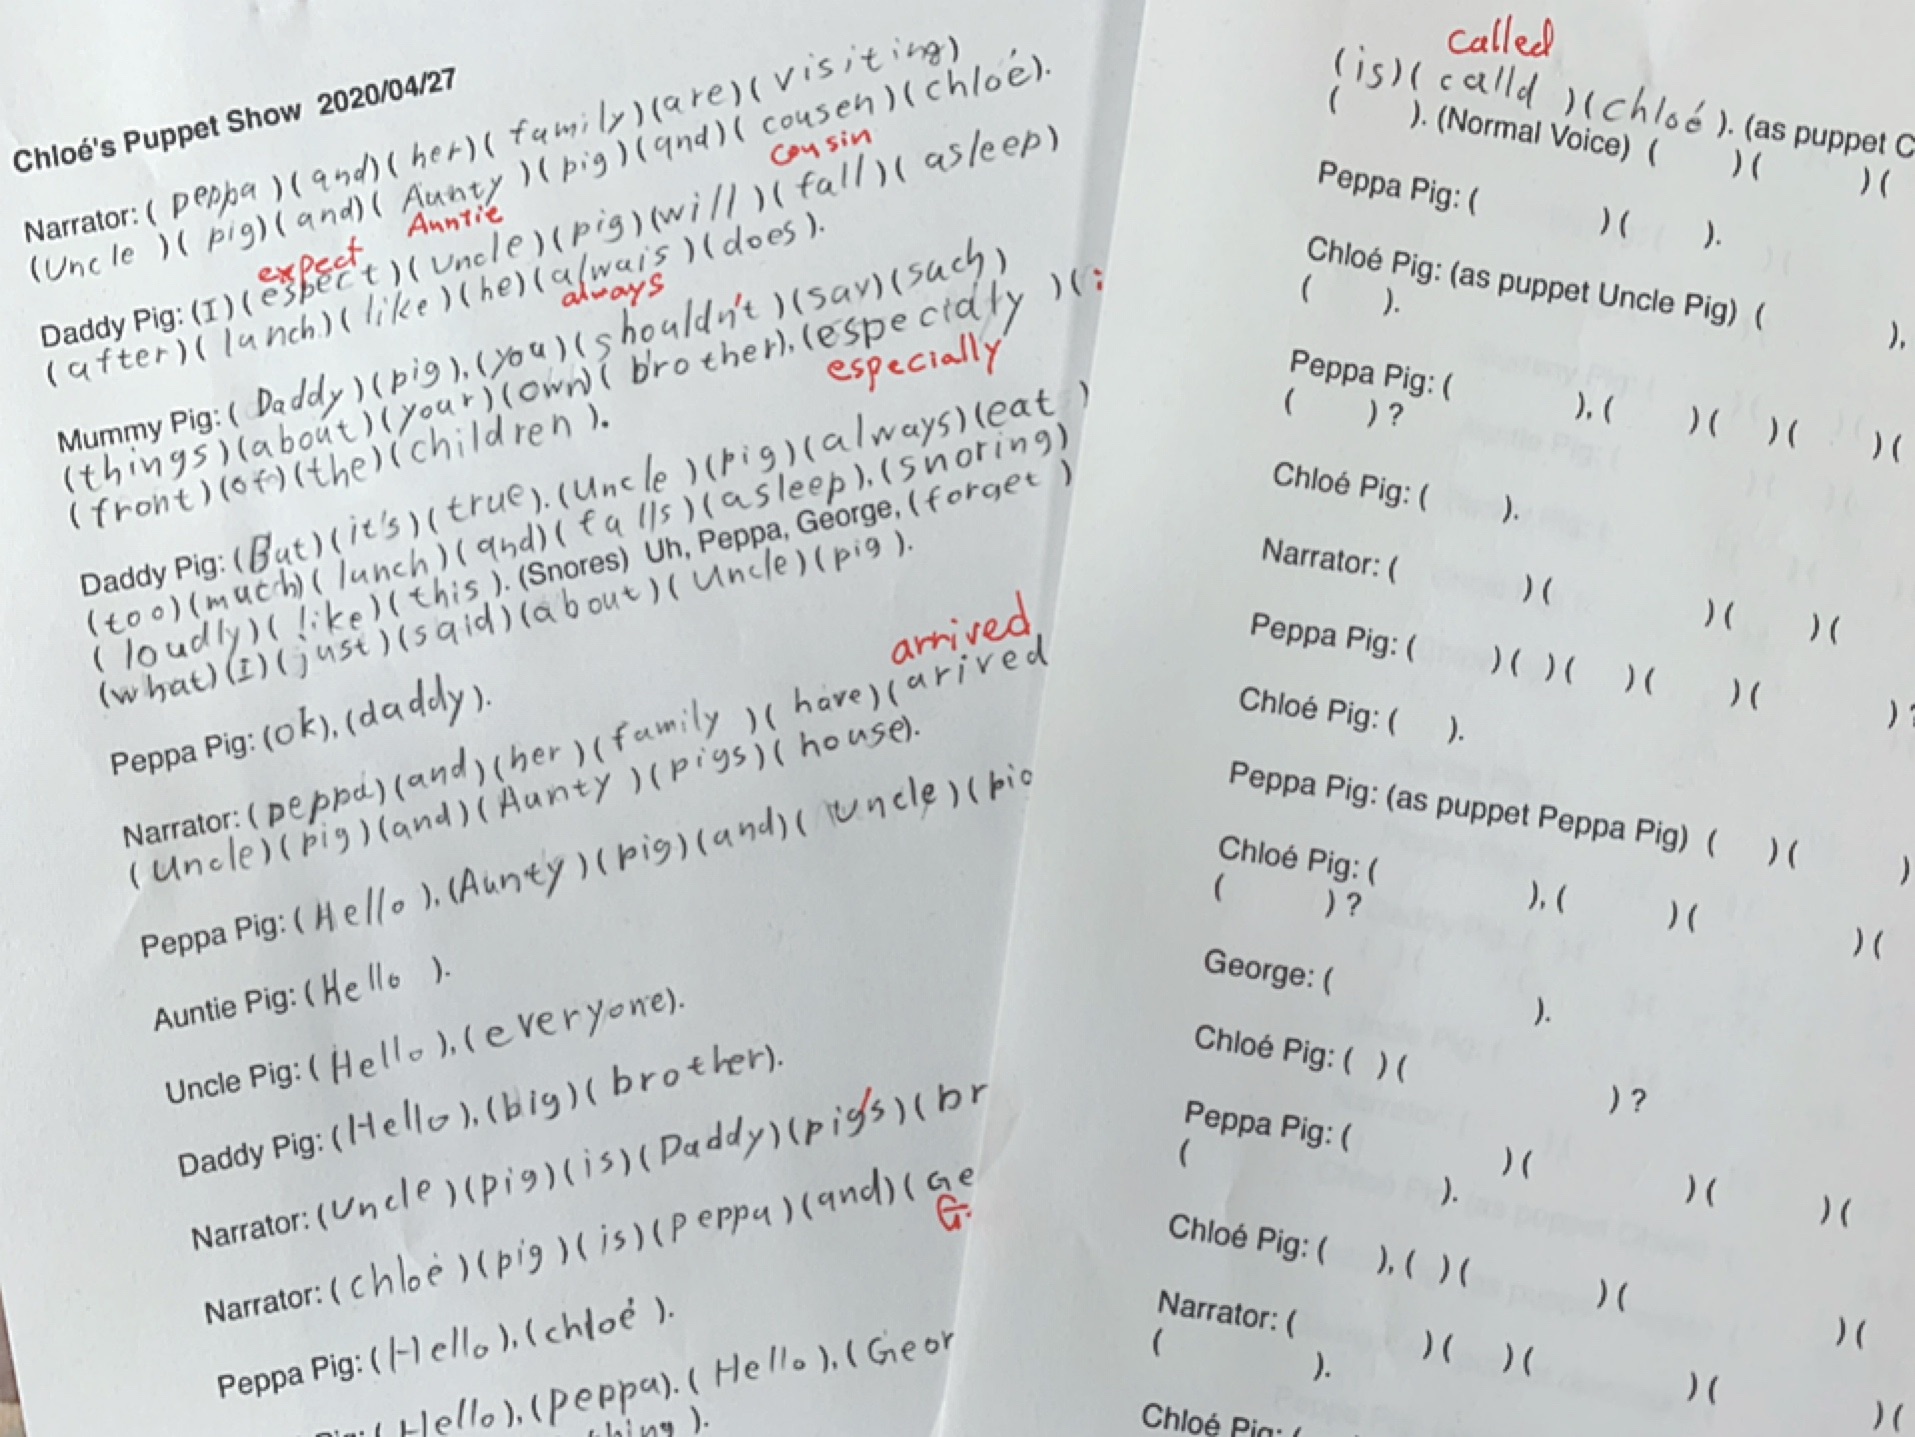 Chloé's Puppet Show 2020/04/27
Narrator: ( peppa )(and)( her)( family)(are)( visiting)
(Uncle )( pig)(and)( Aunty )(pig)(and)( cousen )(chloé).
cousin
Auntie
expect
Daddy Pig: (I)(espect)(Uncle)(pig)(will)(fall)( asleep)
(after)( lunch)( like )(he)(alwais )(does).
always
Mummy Pig: ( Daddy )(pig), (you)(shouldn't )(say)(such)
(things)(about)(your)(own)( brother). (especialty )(
especially
(front)(of)(the)(children ).
Daddy Pig: (But)(it's)(true). (Uncle )(pig)(always)(eat )
(too)(much)( lunch)(and)( falls )(asleep), (snoring)
( loudly)( like)(this ). (Snores) Uh, Peppa, George, (forget )
(what)(I)(just)(said)(about)( Uncle)(pig ).
Peppa Pig: (ok), (daddy).
arrived
Narrator: (peppa)(and)(her )(family )( have)(arived
(Uncle)(pig)(and)(Aunty )(pigs)( house).
Peppa Pig: ( Hello ), (Aunty )(pig)(and)( Uncle)(pig
Auntie Pig: (Hello ).
Uncle Pig: ( Hello), (everyone).
Daddy Pig: (Hello), (big)( brother).
Narrator: (Uncle )(pig)(is)(Daddy)(pig's)( br
Narrator: (chloé )(pig )( is)(peppa )(and)( Ge
G
Peppa Pig: (Hello), (chloé ).
( Hello), (peppa). ( Hello), (Geor
).
called
(is)( calld )(chloé ). (as puppet C
( ). (Normal Voice) ( )( )(
Peppa Pig: ( )( ).
Chloé Pig: (as puppet Uncle Pig) ( ),
( ).
Peppa Pig: ( ), ( )( )( )(
( ) ?
Chloé Pig: ( ).
Narrator: ( )( )( )(
Peppa Pig: ( )( )( )( )( ) ?
Chloé Pig: ( ).
Peppa Pig: (as puppet Peppa Pig) ( )( )
Chloé Pig: ( ), ( )( )(
( ) ?
George: ( ).
Chloé Pig: ( )( ) ?
Peppa Pig: ( )( )( )(
( ).
Chloé Pig: ( ), ( )( )( )(
Narrator: ( )( )( )( )(
( ).
Chloé Pig: (